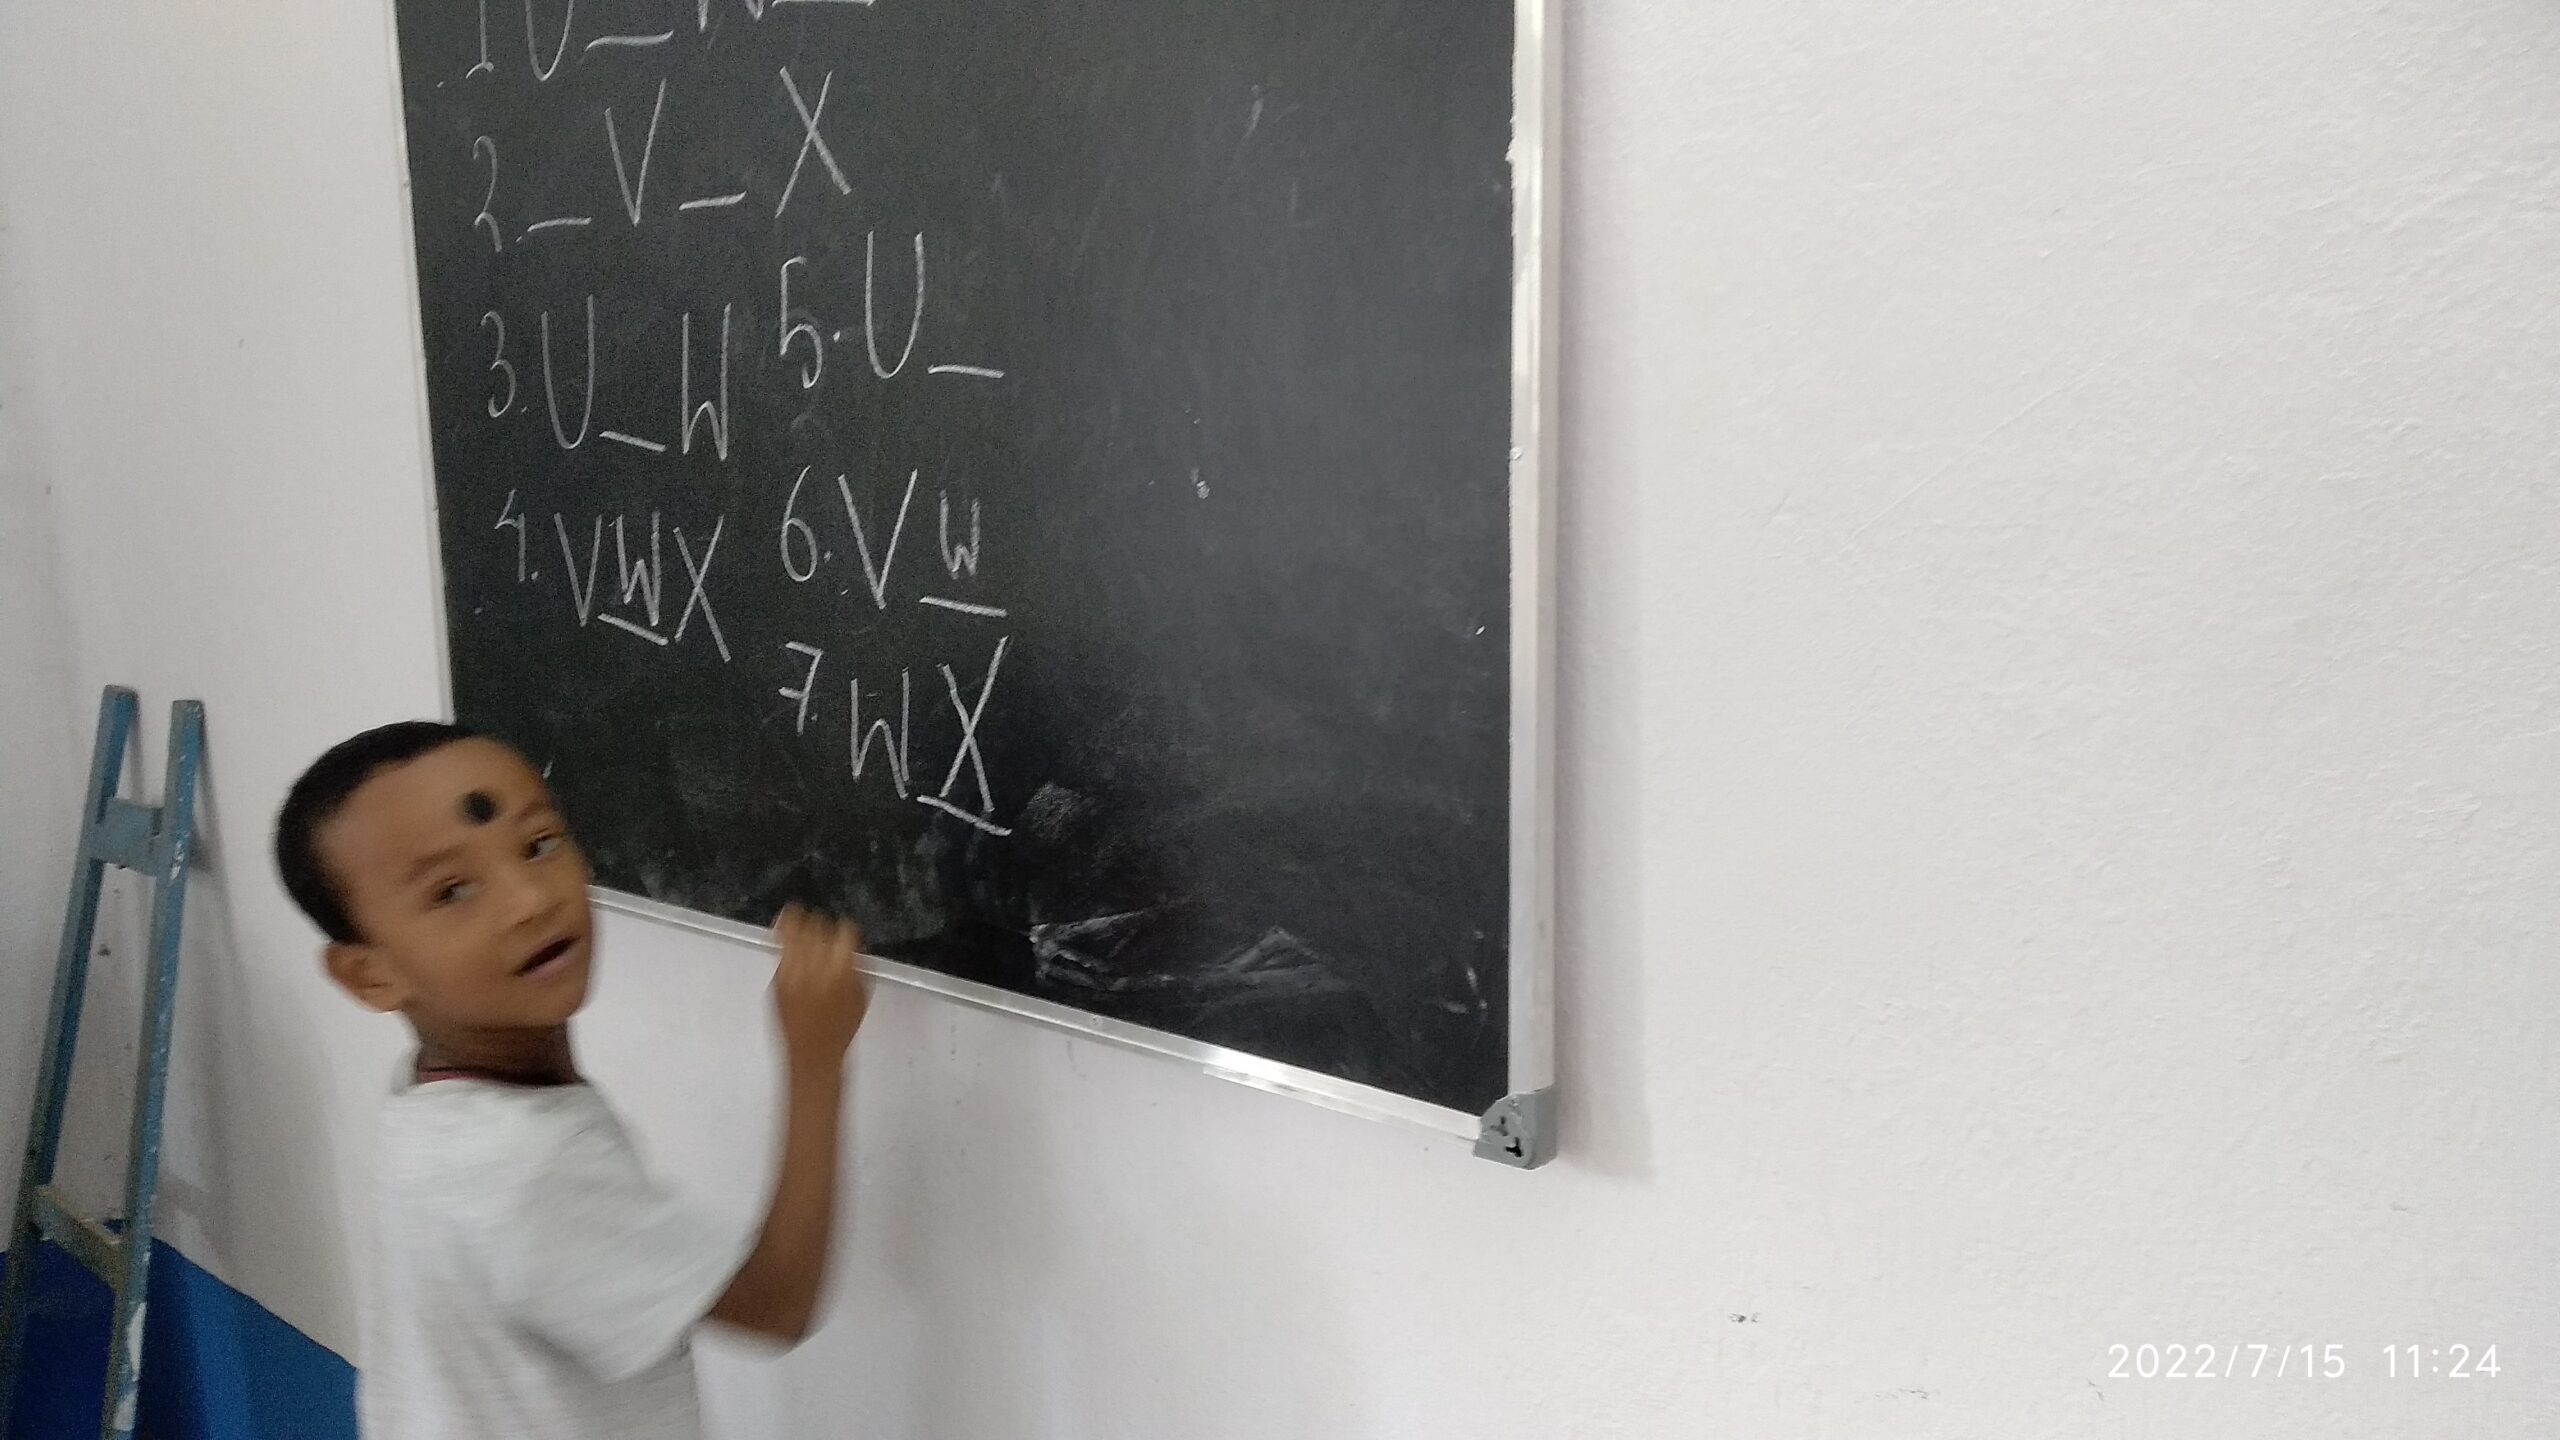 1 U _
2. _ V _ X
3. U _ W
4. V W X
5. U _
6. V W
7. W X
2022/7/15 11:24